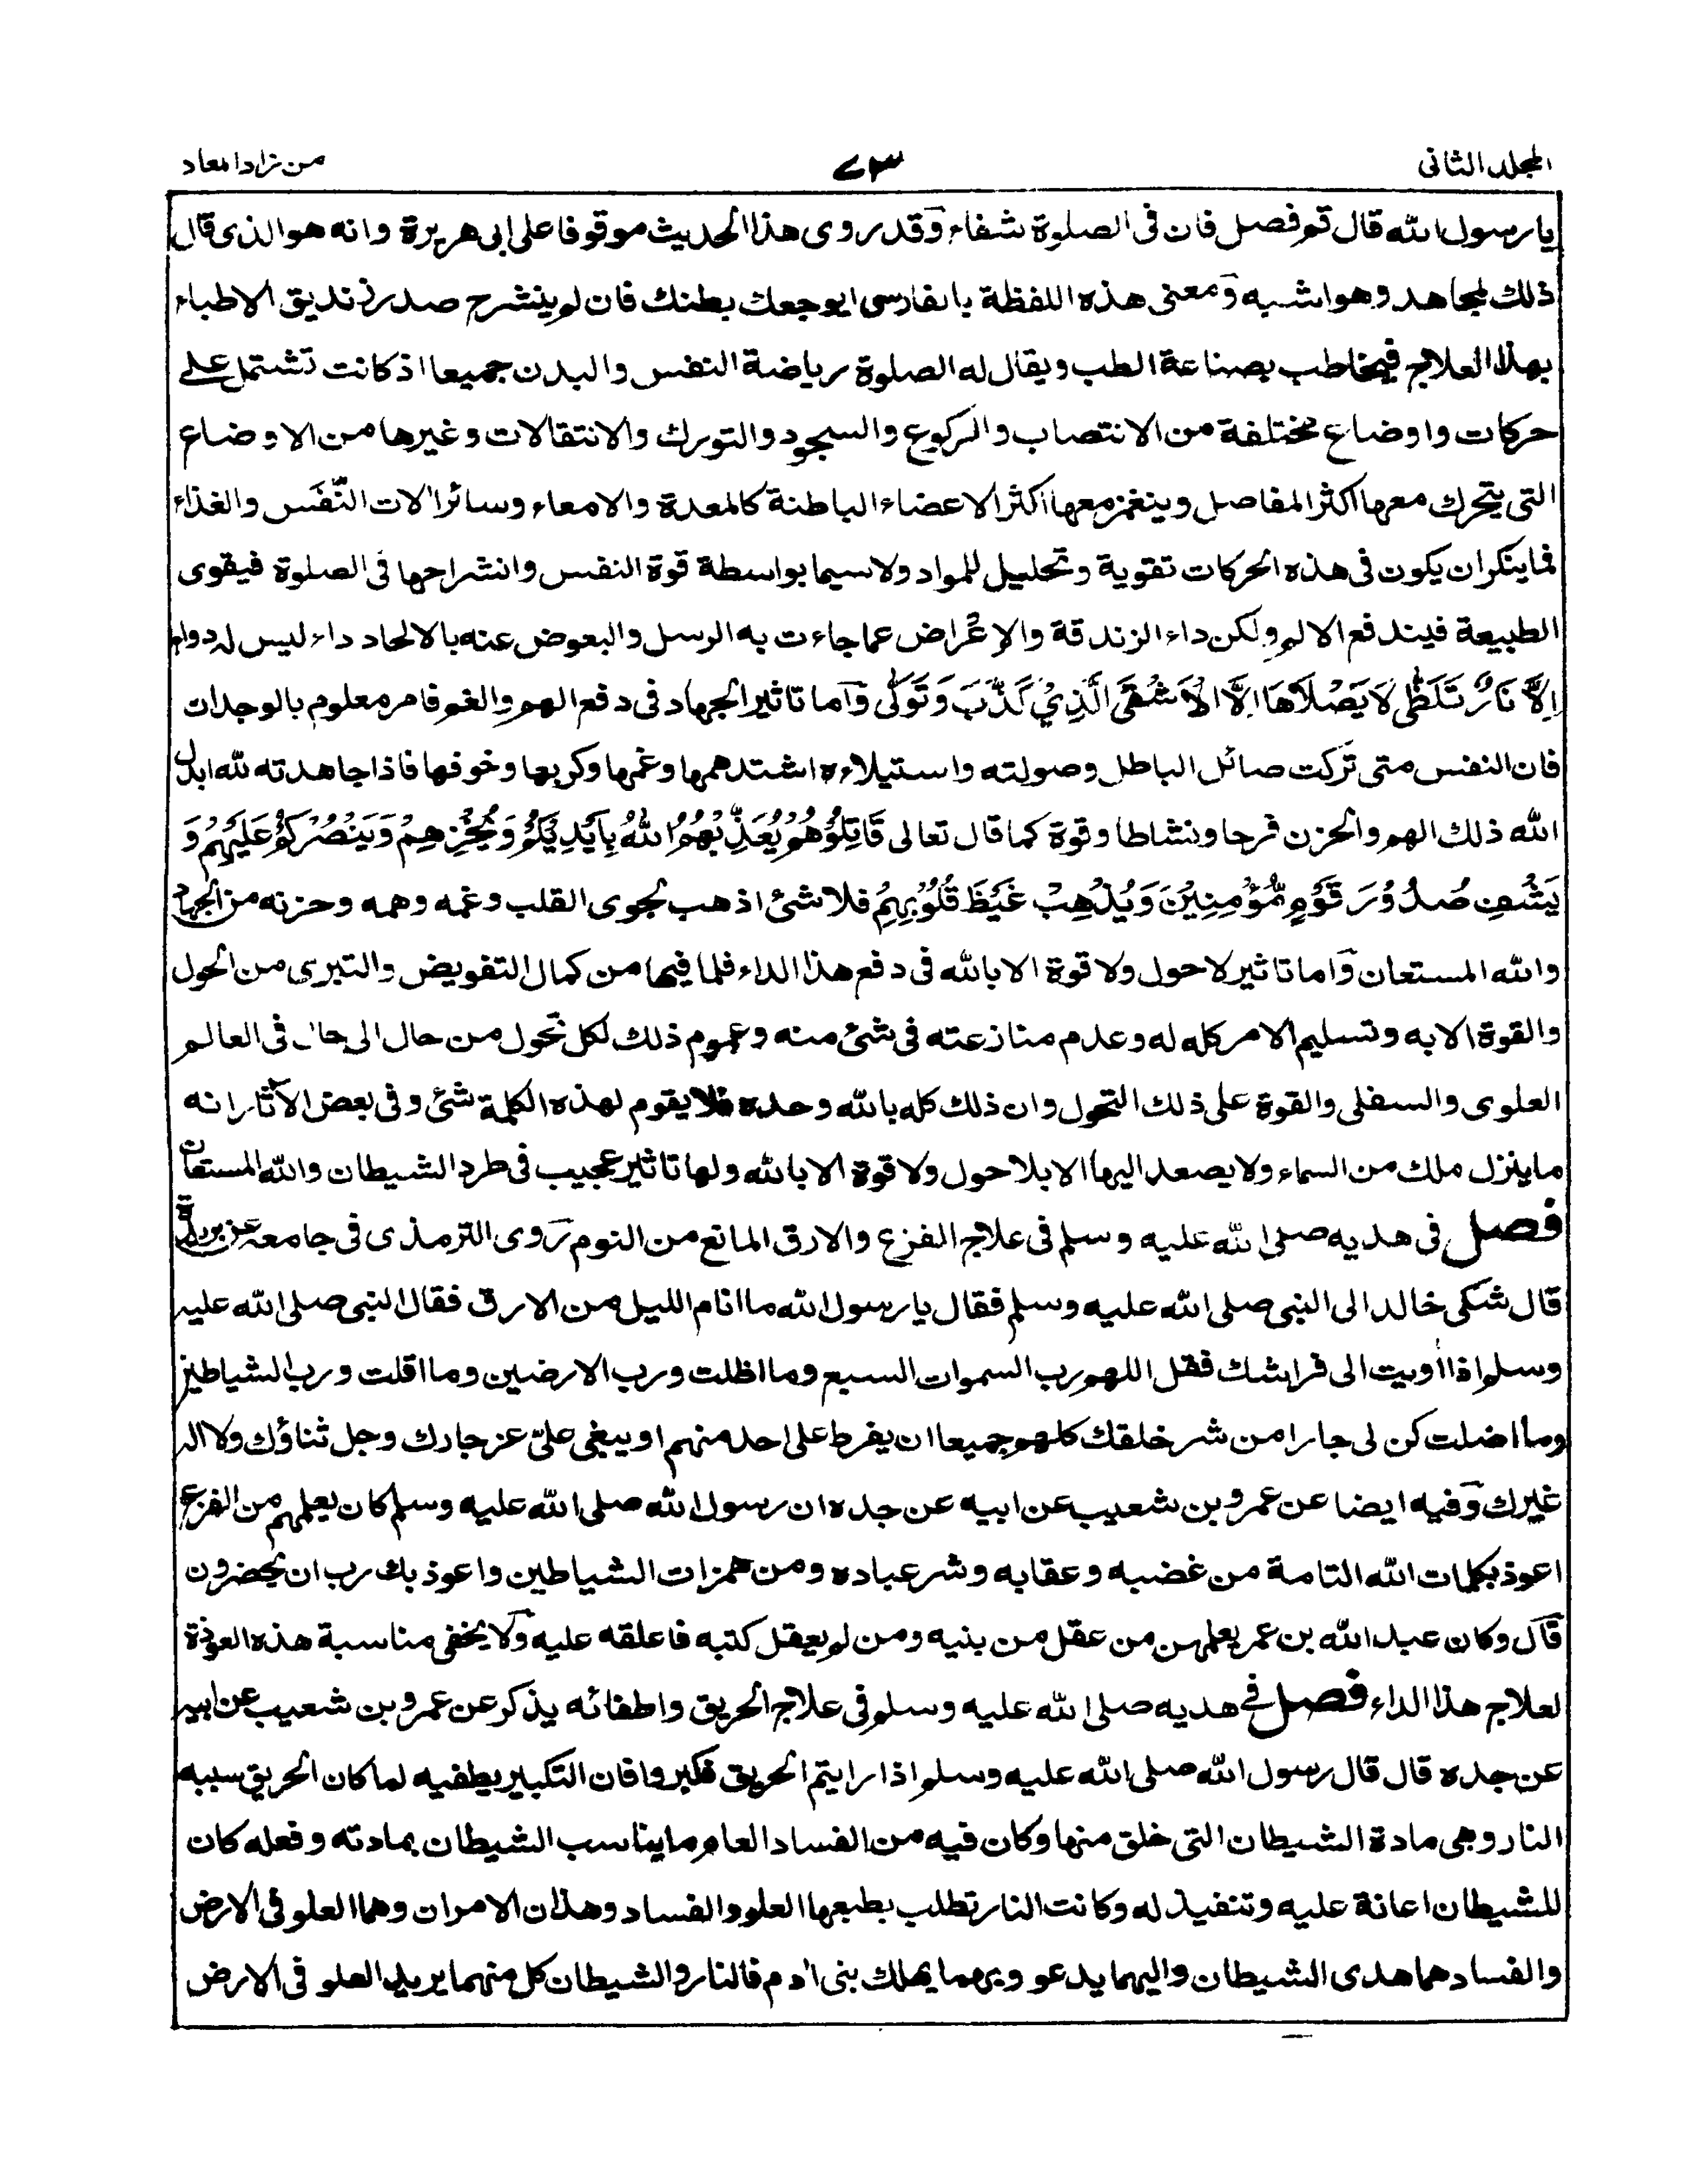 المجلد الثانى
٧٣
من زاد المعاد
يارسول الله قال قم فصل فان فى الصلوة شفاء وقد روى هذا الحديث موقوفا على ابى هريرة وانه هو الذى قال
ذلك لمجاهد وهو اشبه ومعنى هذه اللفظة بالفارسى ايوجعك بطنك فان لم ينشرح صدر زنديق الاطباء
بهذا العلاج فيخاطب بصناعة الطب ويقال له الصلوة رياضة النفس والبدن جميعا اذ كانت تشتمل على
حركات واوضاع مختلفة من الانتصاب والركوع والسجود والتورك والانتقالات وغيرها من الاوضاع
التى يتحرك معها اكثر المفاصل وينغمز معها اكثر الاعضاء الباطنة كالمعدة والامعاء وسائر الات النَّفَس والغذاء
فما ينكر ان يكون فى هذه الحركات تقوية وتحليل للمواد ولاسيما بواسطة قوة النفس وانشراحها فى الصلوة فيقوى
الطبيعة فيندفع الالم ولكن داء الزندقة والاعراض عما جاءت به الرسل والبعوض عنه بالالحاد داء ليس له دواء
اِلَّا نَارٌ تَلَظّٰى لَا يَصْلَاهَا اِلَّا الْاَشْقَى الَّذِيْ كَذَّبَ وَتَوَلّٰى وَاما تاثير الجهاد فى دفع الهم والغم فامر معلوم بالوجدان
فان النفس متى تركت صائل الباطل وصولته واستيلاءه اشتد همها وغمها وكربها وخوفها فاذا جاهدته لله ابدل
الله ذلك الهم والحزن فرحا ونشاطا وقوة كما قال تعالى قَاتِلُوْهُمْ يُعَذِّبْهُمُ اللهُ بِاَيْدِيْكُمْ وَيُخْزِهِمْ وَيَنْصُرْكُمْ عَلَيْهِمْ وَ
يَشْفِ صُدُوْرَ قَوْمٍ مُّؤْمِنِيْنَ وَيُذْهِبْ غَيْظَ قُلُوْبِهِمْ فلا شئ اذهب لجوى القلب وغمه وهمه وحزنه من الجهاد
والله المستعان وَاما تاثير لاحول ولا قوة الا بالله فى دفع هذا الداء فلما فيها من كمال التفويض والتبرى من الحول
والقوة الا به وتسليم الامر كله له وعدم منازعته فى شئ منه وعموم ذلك لكل تحول من حال الى حال فى العالم
العلوى والسفلى والقوة على ذلك التحول وان ذلك كله بالله وحده فلا يقوم لهذه الكلمة شئ وفى بعض الآثار انه
ماينزل ملك من السماء ولا يصعد اليها الا بلا حول ولا قوة الا بالله ولها تاثير عجيب فى طرد الشيطان والله المستعان
فصل فى هديه صلى الله عليه وسلم فى علاج الفزع والارق المانع من النوم رَوى الترمذى فى جامعه عن بريدة
قال شكى خالد الى النبى صلى الله عليه وسلم فقال يارسول الله ما انام الليل من الارق فقال النبى صلى الله عليه
وسلم اذا أويت الى فراشك فقل اللهم رب السموات السبع وما اظلت ورب الارضين وما اقلت ورب الشياطين
وما اضلت كن لى جارا من شر خلقك كلهم جميعا ان يفرط على احد منهم او يبغى علىّ عز جارك وجل ثناؤك ولا اله
غيرك وَفيه ايضا عن عمرو بن شعيب عن ابيه عن جده ان رسول الله صلى الله عليه وسلم كان يعلمهم من الفزع
اعوذ بكلمات الله التامة من غضبه وعقابه وشر عباده ومن همزات الشياطين واعوذ بك رب ان يحضرون
قَال وكان عبد الله بن عمر يعلمهن من عقل من بنيه ومن لم يعقل كتبه فاعلقه عليه وَلا يخفى مناسبة هذه العوذة
لعلاج هذا الداء فصل فى هديه صلى الله عليه وسلم فى علاج الحريق واطفائه يذكر عن عمرو بن شعيب عن ابيه
عن جده قال قال رسول الله صلى الله عليه وسلم اذا رايتم الحريق فكبروا فان التكبير يطفيه لما كان الحريق سببه
النار وهى مادة الشيطان التى خلق منها وكان فيه من الفساد العام ما يناسب الشيطان بمادته وفعله كان
للشيطان اعانة عليه وتنفيذ له وكانت النار تطلب بطبعها العلو والفساد وهذان الامران وهما العلو فى الارض
والفساد هما هدى الشيطان واليهما يدعو وبهما يهلك بنى ادم فالنار والشيطان كل منهما يريد العلو فى الارض